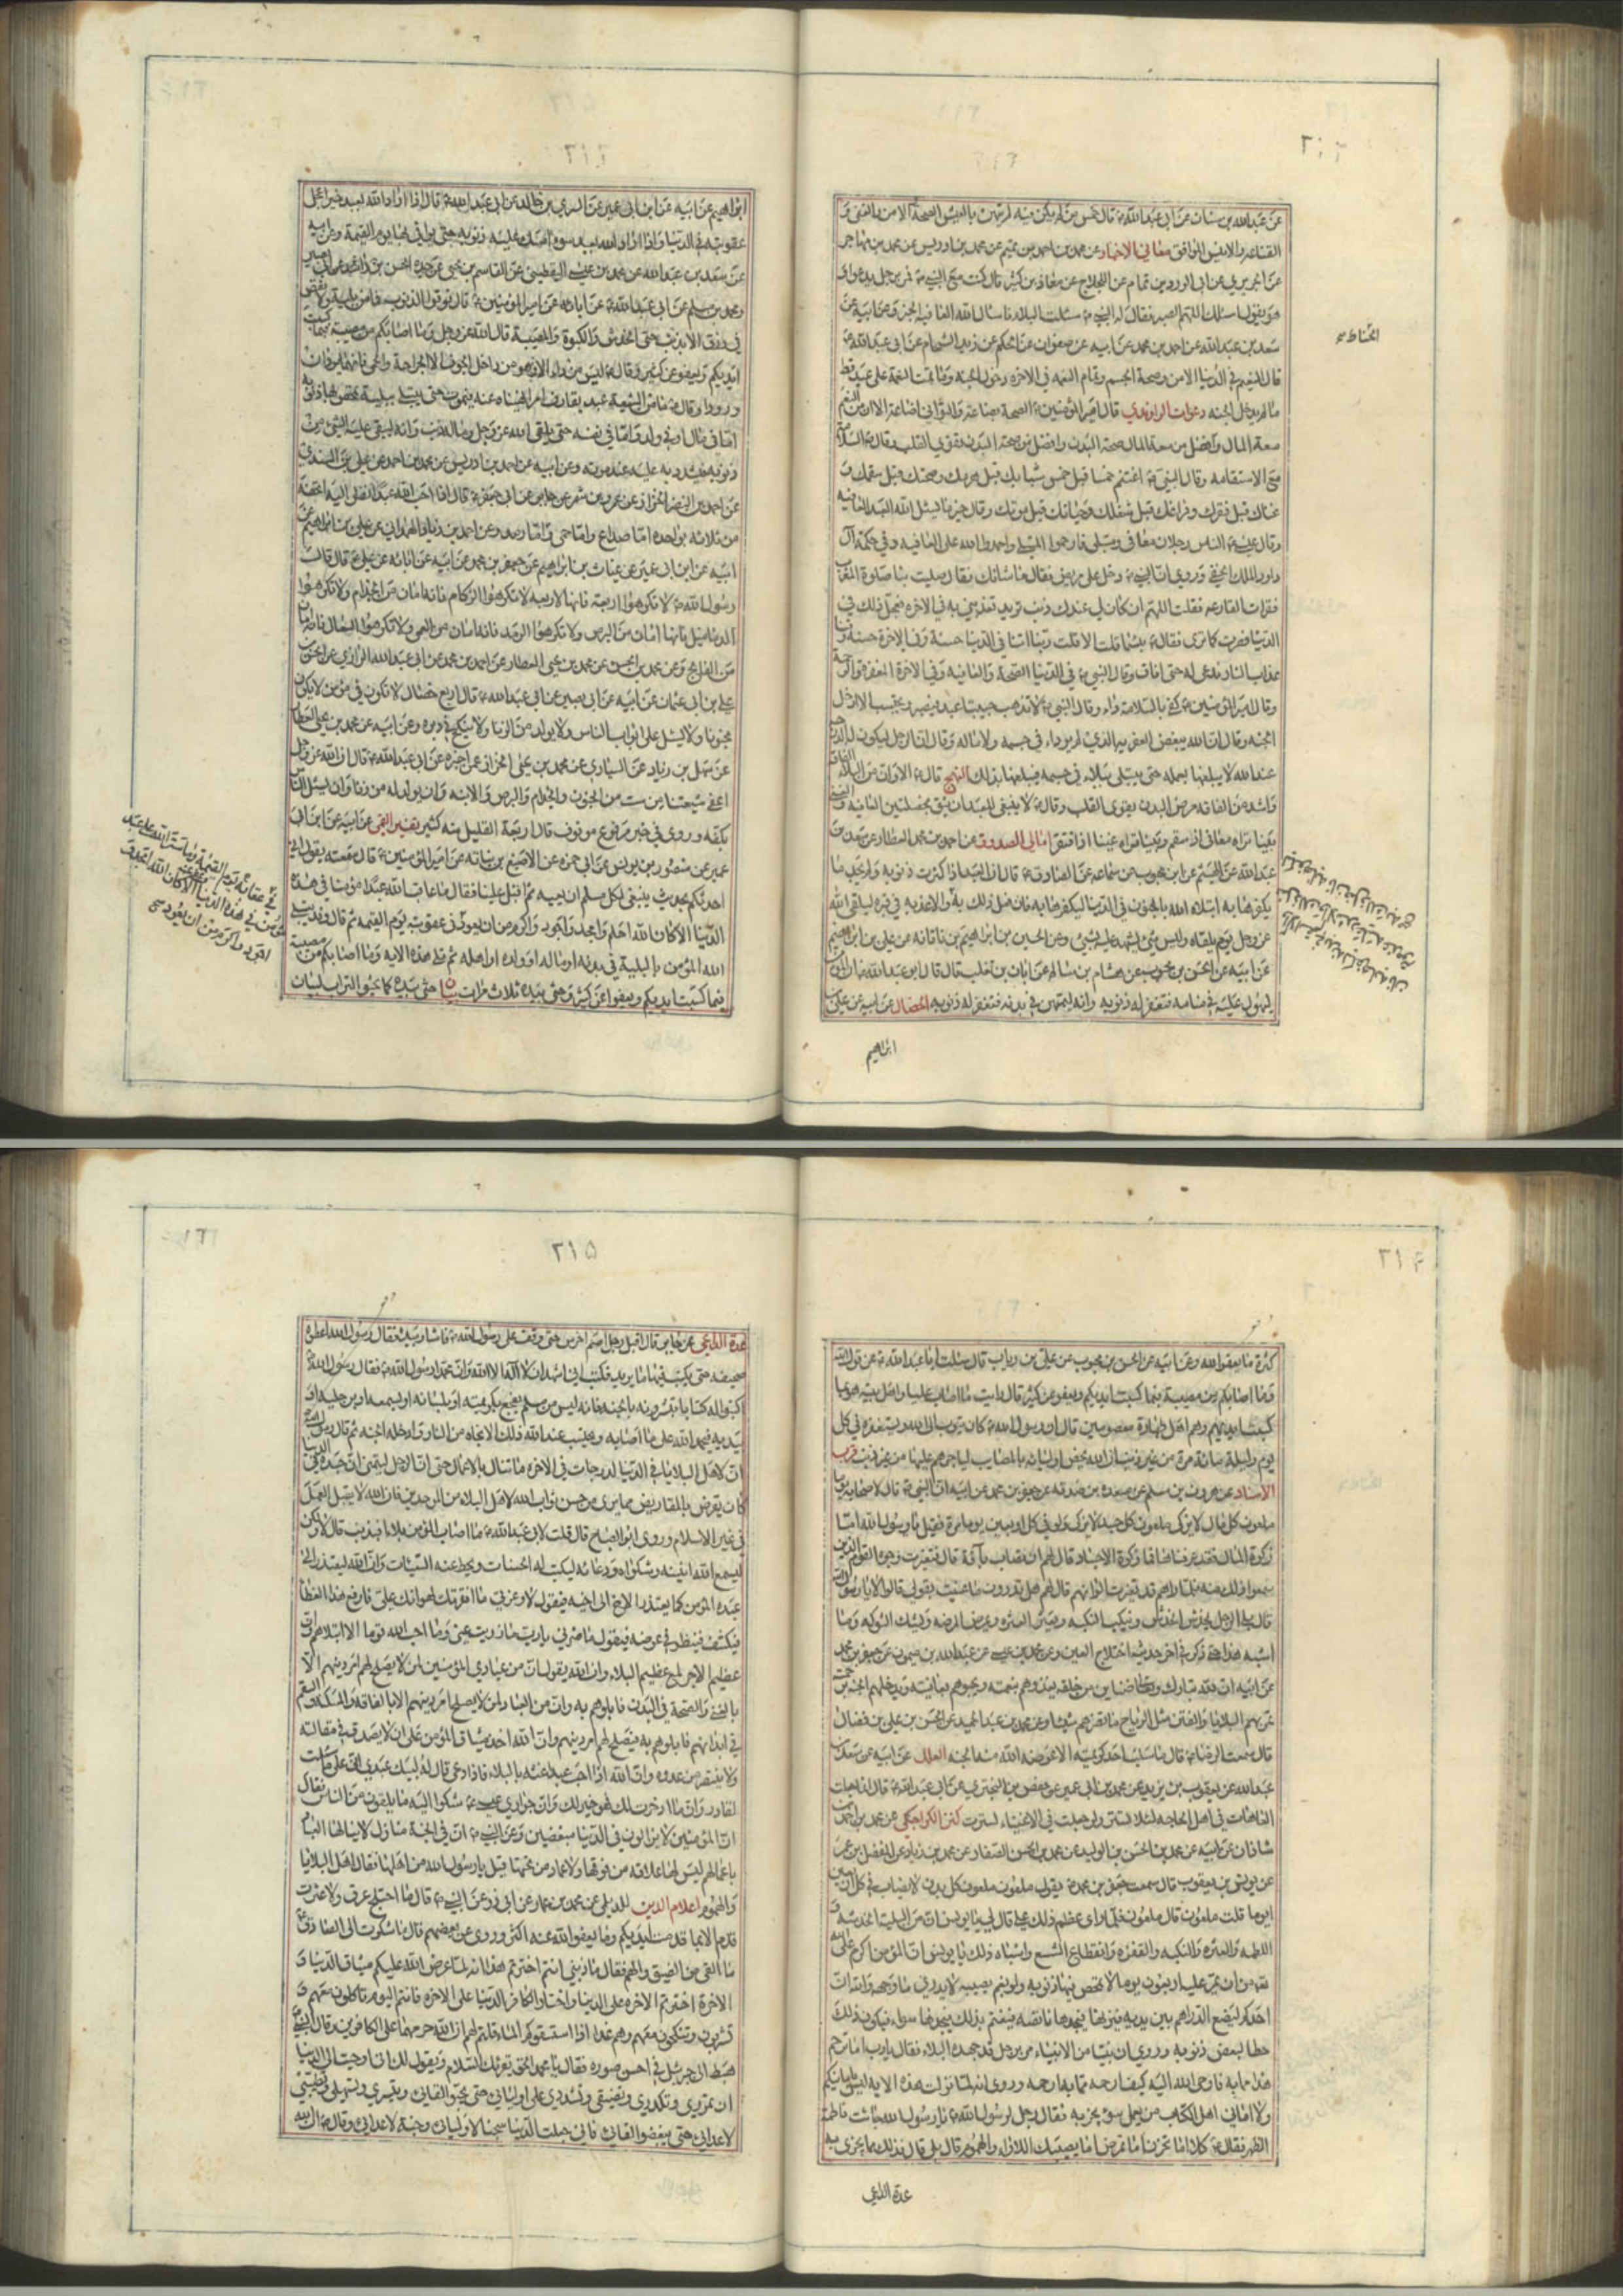 ٢١٢
عن عبد الله بن سنان عن أبي عبد الله ع قال خمس من لم يكن فيه لم يتهن بالعيش الصحة الامن والغنى و
القناعة والانيس الموافق معاني الاخبار عن محمد بن احمد بن تميم عن محمد بن ادريس عن محمد بن مهاجر
عن الجريري عن ابي الورد بن تمام عن اللجلاج عن معاذ بن كثير قال كنت مع النبي ص فمر برجل يدعو
هو يقول اسئلك اللهم الصبر فقال له النبي ص سئلت البلاء فاسئل الله العافية عن ابيه عن
سعد بن عبد الله عن احمد بن محمد عن ابيه عن صفوان عن الحكم عن زيد الشحام عن ابي عبد الله ع
قال النعيم في الدنيا الامن وصحة الجسم وتمام النعمة في الاخرة دخول الجنة وما تمت النعمة على عبد قط
ما لم يدخل الجنة دعوات الراوندي قال امير المؤمنين ع الصحة بضاعة والتواني اضاعة الا ان من النعم
سعة المال وافضل من سعة المال صحة البدن وافضل من صحة البدن تقوى القلب وقال ع السلامة
مع الاستقامة وقال النبي ص اغتنم خمسا قبل خمس شبابك قبل هرمك وصحتك قبل سقمك و
غناك قبل فقرك وفراغك قبل شغلك وحياتك قبل موتك وقال خير ما يسئل الله العبد العافية
وقال عيسى ع الناس رجلان معافى ومبتلى فارحموا المبتلى واحمدوا الله على العافية وفي حكمة آل
داود العافية الملك الخفي وروي ان النبي ص دخل على مريض فقال ما شانك فقال صليت بنا صلوة المغرب
فقرات القارعة فقلت اللهم ان كان لي عندك ذنب تريد تعذبني به في الاخرة فعجل ذلك في
الدنيا فصرت كما ترى فقال ع بئسما قلت الا قلت ربنا اتنا في الدنيا حسنة وفي الاخرة حسنة وقنا
عذاب النار فدعى له حتى افاق وقال النبي ص في الدنيا الصحة والعافية وفي الاخرة المغفرة والرحمة
وقال امير المؤمنين ع كفى بالسلامة داء وقال النبي ص لا تذهب حبيبتا عبد فيصبر ويحتسب الا ادخل
الجنة وقال ان الله يبغض العفرية النفرية الذي لم يرزء في جسمه ولا ماله وقال ان الرجل ليكون له الدرجة
عند الله لا يبلغها بعمله حتى يبتلى ببلاء في جسمه فيبلغها بذلك النهج قال ع الا وان من البلاء الفاقة
واشد من الفاقة مرض البدن تقوى القلب وقال ع لا ينبغي للعبد ان يثق بخصلتين العافية والغنى
بينا تراه معافى اذ سقم وبينا تراه غنيا اذ افتقر امالي الصدوق عن احمد بن محمد العطار عن سعد بن
عبد الله عن الهيثم عن ابن محبوب عن سماعة عن الصادق ع قال ان العبد اذا كثرت ذنوبه ولم يجد ما
يكفرها به ابتلاه الله بالحزن في الدنيا ليكفرها به فان فعل ذلك به والا عذبه في قبره ليلقى الله
عز وجل يوم يلقاه وليس شيء يشهد عليه بشيء وعن الحسين بن ابراهيم بن ناتانه عن علي بن ابراهيم
عن ابيه عن الحسن بن محبوب عن هشام بن سالم عن ابان بن تغلب قال قال ابو عبد الله ع ان المؤمن
ليهول عليه في منامه فتغفر له ذنوبه وانه ليمتهن في بدنه فتغفر له ذنوبه الخصال عن ابيه عن علي بن
ابراهيم
الخياط صح
٢١٣
ابراهيم عن ابيه عن ابن ابي عمير عن السري بن خالد عن ابي عبد الله ع قال اذا اراد الله بعبد خيرا عجل
عقوبته في الدنيا واذا اراد الله بعبد سوءا امسك عليه ذنوبه حتى يوافي بها يوم القيمة وعن ابيه
عن سعد بن عبد الله عن محمد بن عيسى اليقطيني عن القاسم بن يحيى عن جده الحسن بن راشد عن ابي بصير
ومحمد بن مسلم عن ابي عبد الله ع عن ابائه عن امير المؤمنين ع قال توقوا الذنوب فما من بلية ولا نقص
في رزق الا بذنب حتى الخدش والكبوة والمصيبة قال الله عز وجل وما اصابكم من مصيبة فبما كسبت
ايديكم ويعفو عن كثير وقال ع ليس من داء الا وهو من داخل الجوف الا الجراحة والحمى فانهما يردان
ورودا وقال ع ما من الشيعة عبد يقارف امرا نهيناه عنه فيموت حتى يبتلى ببلية تمحص بها ذنوبه
اما في مال او في ولد واما في نفسه حتى يلقى الله عز وجل وما له ذنب وانه ليبقى عليه الشيء من
ذنوبه فيشدد به عليه عند موته وعن ابيه عن احمد بن ادريس عن محمد بن احمد عن علي بن السندي
عن احمد بن النضر الخزاز عن عمرو بن شمر عن جابر عن ابي جعفر ع قال اذا احب الله عبدا نظر اليه اتحفه
من ثلاثة بواحدة اما صداع واما حمى واما رمد وعن احمد بن زياد الهمداني عن علي بن ابراهيم عن
ابيه عن ابن ابي عمير عن غياث بن ابراهيم عن جعفر بن محمد عن ابيه عن ابائه عن علي ع قال قال
رسول الله ص لا تكرهوا اربعة فانها لاربعة لا تكرهوا الزكام فانه امان من الجذام ولا تكرهوا
الدماميل فانها امان من البرص ولا تكرهوا الرمد فانه امان من العمى ولا تكرهوا السعال فانه امان
من الفالج وعن محمد بن الحسن عن محمد بن يحيى العطار عن احمد بن محمد عن ابي عبد الله الرازي عن الحسن بن
علي بن ابي عثمان عن ابيه عن ابي بصير عن ابي عبد الله ع قال اربع خصال لا تكون في مؤمن لا يكون
مجنونا ولا يسئل على ابواب الناس ولا يولد من الزنا ولا ينكح في دبره وعن ابيه عن محمد بن يحيى العطار
عن سهل بن زياد عن السياري عن محمد بن يحيى الخزاز عن اخبره عن ابي عبد الله ع قال ان الله عز وجل
اعفى شيعتنا من ست من الجنون والجذام والبرص والابنة وان يولد له من زنا وان يسئل الناس
بكفه وروى في خبر مرفوع موقوف قال اربعة القليل منه كثير تفسير القمي عن ابيه عن ابن ابي
عمير عن منصور بن يونس عن ابي حمزة عن الاصبغ بن نباته عن امير المؤمنين ع قال سمعته يقول اني
احدثكم بحديث ينبغي لكل مسلم ان يعيه ثم اقبل علينا فقال ما عاقب الله عبدا مؤمنا في هذه
الدنيا الا كان الله احلم وامجد واجود واكرم من ان يعود في عقوبته يوم القيمة ثم قال وقد يبتلي
الله المؤمن بالبلية في بدنه او ماله او ولده او اهله ثم تلا هذه الاية وما اصابكم من مصيبة
فبما كسبت ايديكم ويعفو عن كثير وحثى بيده ثلاث مرات حثى بيده كما يحثو التراب
في عقابه يوم القيمة وما ستر الله على عبد
مؤمن في هذه الدنيا وعفى عنه الا كان الله امجد و
اجود واكرم من ان يعود صح
٢١۴
كثرة ما يعفو الله وعن ابيه عن الحسن بن محبوب عن علي بن رياب قال سئلت ابا عبد الله ع عن قول الله
وما اصابكم من مصيبة فبما كسبت ايديكم ويعفو عن كثير قال ارايت ما اصاب عليا واهل بيته هو بما
كسبت ايديهم وهم اهل طهارة معصومين قال ان رسول الله ص كان يتوب الى الله ويستغفره في كل
يوم وليلة مائة مرة من غير ذنب ان الله يخص اوليائه بالمصايب لياجرهم عليها من غير ذنب قرب
الاسناد عن هرون بن مسلم عن مسعدة بن صدقة عن جعفر بن محمد عن ابيه ان النبي ص قال لاصحابه يوما
ملعون كل مال لا يزكى ملعون كل جسد لا يزكى ولو في كل اربعين يوما مرة فقيل يا رسول الله اما
زكوة المال فقد عرفناها فما زكوة الاجساد قال لهم ان تصاب بافة قال فتغيرت وجوه القوم الذين
سمعوا ذلك منه فلما راهم قد تغيرت الوانهم قال لهم هل تدرون ما عنيت بقولي قالوا لا يا رسول الله
قال بلى الرجل يخدش الخدش وينكب النكبة ويعثر العثرة ويمرض المرضة ويشاك الشوكة وما
اشبه هذا حتى ذكر في اخر حديثه اختلاج العين وعن محمد بن عيسى عن عبد الله بن ميمون عن جعفر بن محمد
عن ابيه ان لله تبارك وتعالى ضناين من خلقه يغذوهم بنعمته ويحبوهم بعافيته ويدخلهم الجنة برحمته
تمر بهم البلايا والفتن مثل الرياح ما تضرهم شيئا وعن محمد بن عبد الحميد عن الحسن بن علي بن فضال
قال سمعت الرضا ع قال ما سلب احد كريمته الا عوضه الله منه الجنة العلل عن ابيه عن سعد بن
عبد الله عن يعقوب بن يزيد عن محمد بن ابي عمير عن حفص بن البختري عن ابي عبد الله ع قال انما جعلت
العاهات في اهل الحاجة لئلا يستتر ولو جعلت في الاغنياء لسترت كنز الكراجكي عن محمد بن احمد بن
شاذان عن ابيه عن محمد بن الحسن بن الوليد عن محمد بن الحسن الصفار عن محمد بن زياد عن المفضل بن عمر
عن يونس بن يعقوب قال سمعت جعفر بن محمد ع يقول ملعون ملعون كل بدن لا يصاب في كل اربعين
يوما قلت ملعون قال ملعون فلما راى عظم ذلك علي قال لي يا يونس ان من البلية الخدشة و
اللطمة والعثرة والنكبة والقفزة وانقطاع الشسع واشباه ذلك يا يونس ان المؤمن اكرم على الله
تعالى من ان يمر عليه اربعون يوما لا يمحص فيها ذنوبه ولو بغم يصيبه لا يدري ما وجهه والله ان
احدكم ليضع الدراهم بين يديه فيزنها فيجدها ناقصة فيغتم بذلك فيجدها سواء فيكون ذلك
حطا لبعض ذنوبه وروي ان نبيا من الانبياء مر برجل قد جهده البلاء فقال يا رب اما ترحم
هذا مما به فاوحى الله اليه كيف ارحمه مما به ارحمه وروي انه لما نزلت هذه الاية ليس بامانيكم
ولا اماني اهل الكتاب من يعمل سوء يجز به فقال رجل لرسول الله ص يا رسول الله جائت قاصمة
الظهر فقال ع كلا اما تحزن اما تمرض اما يصيبك اللاواء والهموم قال بلى قال فذلك مما يجزى به
عدة الداعي
٢١۵
عدة الداعي عن جابر قال اقبل رجل اصم اخرس حتى وقف على رسول الله ص فاشار بيده فقال رسول الله اعطوه
صحيفة حتى يكتب فيها ما يريد فكتب اني اشهد ان لا اله الا الله وان محمدا رسول الله ص فقال رسول الله ص
اكتبوا له كتابا تبشرونه بالجنة فانه ليس من مسلم يفجع بكريمته او بلسانه او بسمعه او برجله او
بيده فيحمد الله على ما اصابه ويحتسب عند الله ذلك الا نجاه من النار وادخله الجنة ثم قال رسول الله
ان لاهل البلايا في الدنيا لدرجات في الاخرة ما تنال بالاعمال حتى ان الرجل ليتمنى ان جسده في الدنيا
كان يقرض بالمقاريض مما يرى من حسن ثواب الله لاهل البلاء من الموحدين فان الله لا يقبل العمل
في غير الاسلام وروى ابو الصباح قال قلت لابي عبد الله ع ما اصاب المؤمن من بلاء افبذنب قال لا ولكن
ليسمع الله انينه وشكواه ودعائه ليكتب له الحسنات ويحط عنه السيئات وان الله ليعتذر الى
عبده المؤمن كما يعتذر الاخ الى اخيه فيقول لا وعزتي ما افقرتك لهوانك علي فارفع هذا الغطاء
فيكشف فينظر في عوضه فيقول ما ضرني يا رب ما زويت عني وما احب الله قوما الا ابتلاهم وان
عظيم الاجر لمع عظيم البلاء وان الله يقول ان من عبادي المؤمنين لمن لا يصلح لهم امر دينهم الا
بالغنى والصحة في البدن فابلوهم به وان من العباد لمن لا يصلح امر دينهم الا بالفاقة والمسكنة والسقم
في ابدانهم فابلوهم به فيصلح لهم امر دينهم وان الله اخذ ميثاق المؤمن على ان لا يصدق في مقالته
ولا ينتصر من عدوه وان الله اذا احب عبدا غته بالبلاء فاذا دعى قال له لبيك عبدي اني على ما سئلت
لقادر وان ما ادخرت لك فهو خير لك وان حواري عيسى ع شكوا اليه ما يلقون من الناس فقال
ان المؤمنين لا يزالون في الدنيا مبغضين وعن النبي ص ان في الجنة منازل لا ينالها العباد
باعمالهم ليس لها علاقة من فوقها ولا عماد من تحتها قيل يا رسول الله من اهلها فقال اهل البلايا
والهموم اعلام الدين للديلمي عن محمد بن عمار عن ابي ذر عن النبي ص قال ما اختلج عرق ولا عثرت
قدم الا بما قدمت ايديكم وما يعفو الله عنه اكثر وروي عن بعضهم قال شكوت الى الصادق ع
ما القى من الضيق والهم فقال ما ذنبي انتم اخترتم هذا انه لما عرض الله عليكم ميثاق الدنيا و
الاخرة اخترتم الاخرة على الدنيا واختار الكافر الدنيا على الاخرة فانتم اليوم تاكلون معهم و
تشربون وتنكحون معهم وهم غدا اذا استسقوكم الماء قلتم لهم ان الله حرمهما على الكافرين وقال النبي ص
هبط الي جبرئيل في احسن صورة فقال يا محمد الحق يقرئك السلام ويقول لك اني اوحيت الى الدنيا
ان تمرري وتكدري وتضيقي وتشددي على اوليائي حتى يحبوا لقائي وتيسري وتسهلي وتطيبي
لاعدائي حتى يبغضوا لقائي فاني جعلت الدنيا سجنا لاوليائي وجنة لاعدائي وقال ع ان الله